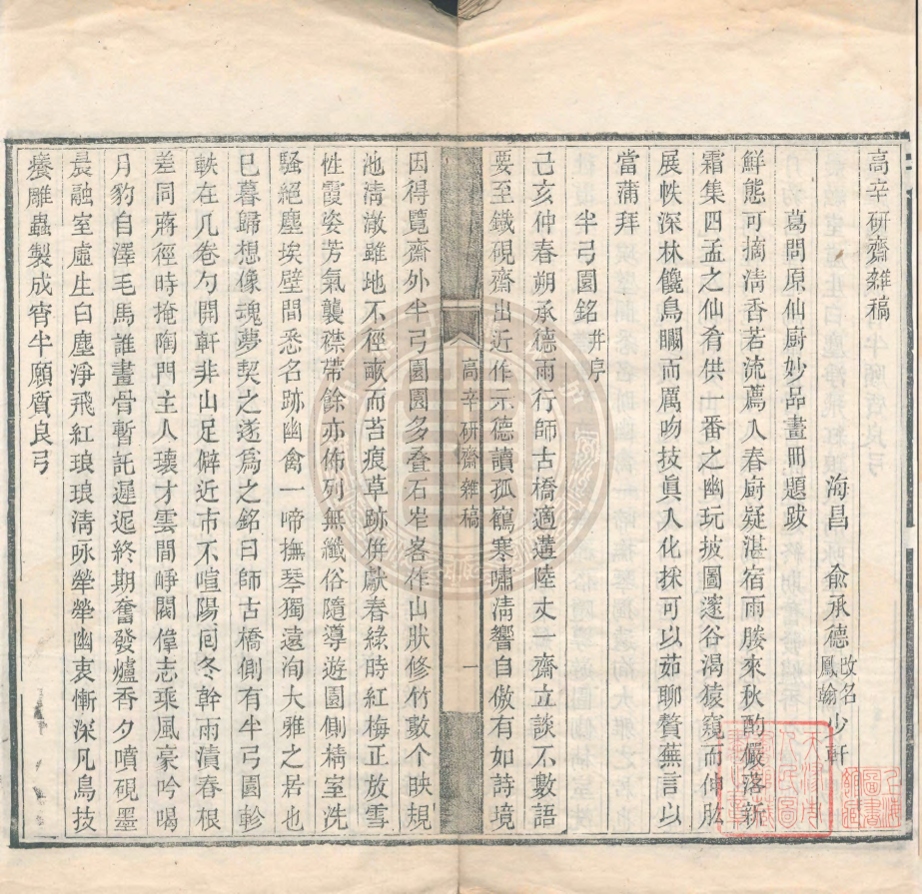 高辛研齋雜稿
海昌 俞承德改名鳳翰少軒
葛問原仙廚妙品畫冊題跋
鮮態可摘淸香若流薦入春廚疑湛宿雨勝來秋酌儼落新
霜集四孟之仙肴供一番之幽玩披圖邃谷渴猿窺而伸肱
展帙深林饞鳥瞷而厲吻技眞入化採可以茹聊贅蕪言以
當蒲拜
半弓園銘幷序
己亥仲春朔承德雨行師古橋適遘陸丈一齋立談不數語
要至鐵硯齋出近作示德讀孤鶴寒嘯淸響自傲有如詩境
高辛研齋雜稿
一
因得覽齋外半弓園園多叠石岝峉作山狀修竹數个映規
池淸澈雖地不徑畝而苔痕草跡併獻春綠時紅梅正放雪
性霞姿芳氣襲襟帶餘亦佈列無纖俗隨導遊園側精室洗
騷絕塵埃壁間悉名跡幽禽一啼撫琴獨遠洵大雅之居也
巳暮歸想像魂夢契之遂爲之銘曰師古橋側有半弓園軫
軼在几卷勺開軒非山足僻近市不喧陽囘冬幹雨漬春根
差同蔣徑時掩陶門主人瓌才雲間崢閣偉志乘風豪吟喝
月豹自澤毛馬誰畫骨暫託遲迟終期奮發爐香夕噴硯墨
晨融室虛生白塵淨飛紅琅琅淸咏犖犖幽衷慚深凡鳥技
癢雕蟲製成宵半願質良弓